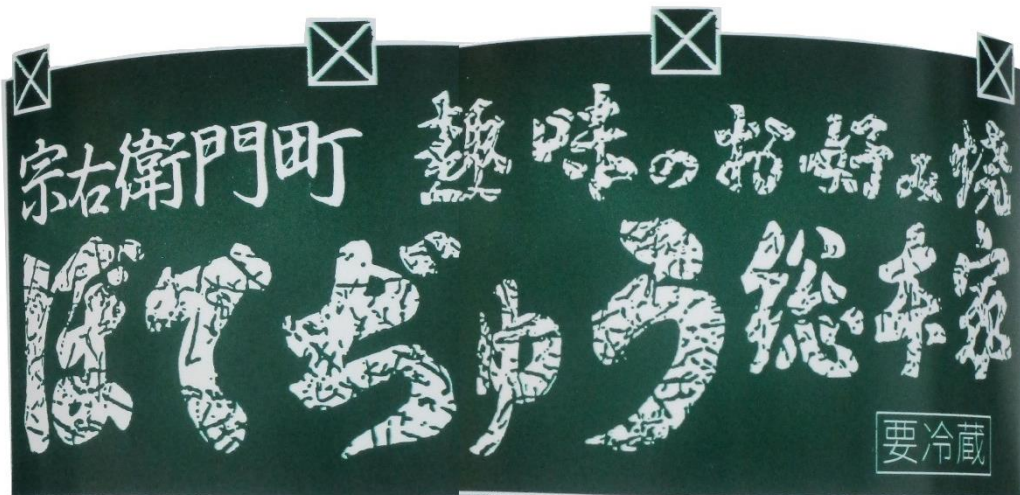 宗右衛門町 趣味のお好み焼
ぼてぢゅう総本家
要冷蔵